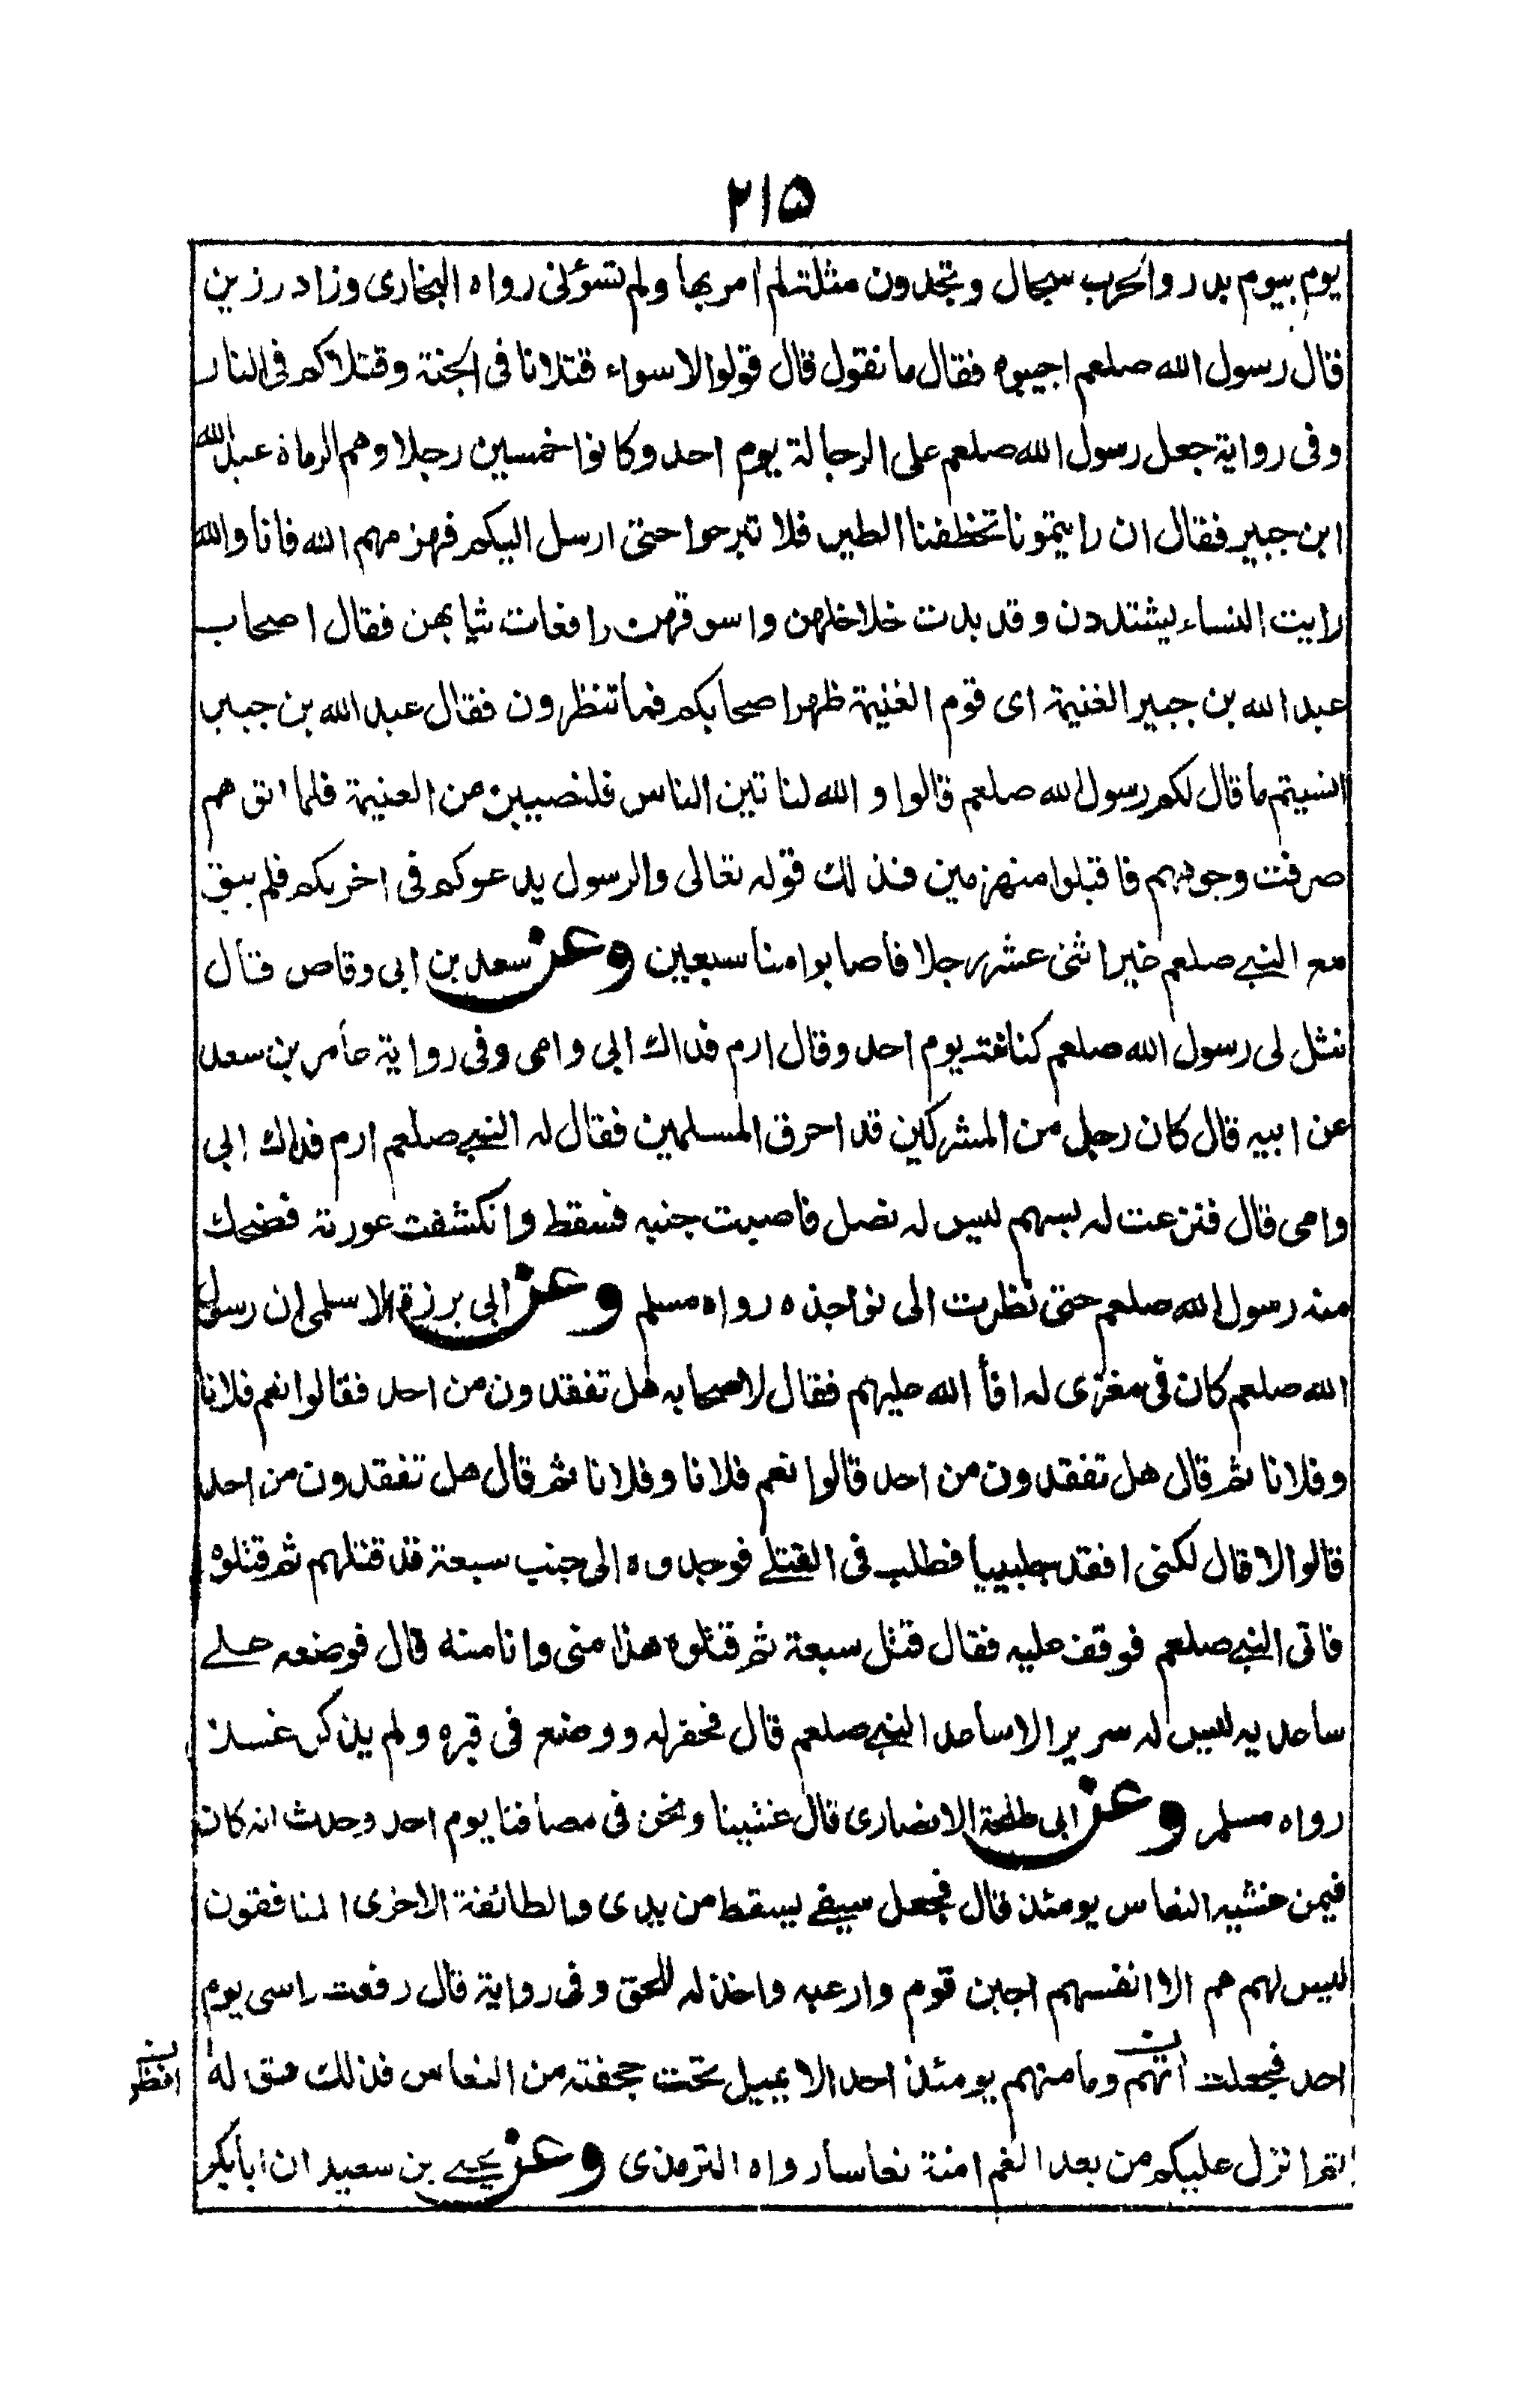 ۲۱۵
يوم بيوم بدر والحرب سجال وتجدون مثلة لم امر بها ولم تسؤنى رواه البخارى وزاد رزين
قال رسول الله صلعم اجيبوه فقال ما نقول قال قولوا لا سواء قتلانا فى الجنة وقتلاكم فى النار
وفى رواية جعل رسول الله صلعم على الرجالة يوم احد وكانوا خمسين رجلا وهم الرماة عبد الله
ابن جبير فقال ان رايتمونا تخطفنا الطير فلا تبرحوا حتى ارسل اليكم فهزمهم الله فانا والله
رايت النساء يشتددن وقد بدت خلاخلهن واسوقهن رافعات ثيابهن فقال اصحاب
عبد الله بن جبير الغنيمة اى قوم الغنيمة ظهر اصحابكم فما تنظرون فقال عبد الله بن جبير
انسيتم ما قال لكم رسول الله صلعم قالوا والله لناتين الناس فلنصيبن من الغنيمة فلما اتوهم
صرفت وجوههم فاقبلوا منهزمين فذلك قوله تعالى والرسول يدعوكم فى اخريكم فلم يبق
مع النبي صلعم غير اثنى عشر رجلا فاصابوا منا سبعين وعن سعد بن ابى وقاص قال
نثل لى رسول الله صلعم كنانته يوم احد وقال ارم فداك ابى وامى وفى رواية عامر بن سعد
عن ابيه قال كان رجل من المشركين قد احرق المسلمين فقال له النبي صلعم ارم فداك ابى
وامى قال فنزعت له بسهم ليس له نصل فاصبت جنبه فسقط وانكشفت عورته فضحك
منه رسول الله صلعم حتى نظرت الى نواجذه رواه مسلم وعن ابى برزة الاسلمى ان رسول
الله صلعم كان فى مغزى له افأ الله عليهم فقال لاصحابه هل تفقدون من احد فقالوا نعم فلانا
وفلانا ثم قال هل تفقدون من احد قالوا نعم فلانا وفلانا ثم قال هل تفقدون من احد
قالوا لا قال لكنى افقد جليبيبا فطلب فى القتلے فوجدوه الى جنب سبعة قد قتلهم ثم قتلوه
فاتى النبي صلعم فوقف عليه فقال قتل سبعة ثم قتلوه هذا منى وانا منه قال فوضعه علے
ساعديه ليس له سرير الا ساعد النبي صلعم قال فحفر له ووضع فى قبره ولم يذكر غسلا
رواه مسلم وعن ابى طلحة الانصارى قال غشينا ونحن فى مصافنا يوم احد وحدث انه كان
فيمن غشيه النعاس يومئذ قال فجعل سيفے يسقط من يدى والطائفة الاخرى المنافقون
ليس لهم هم الا انفسهم اجبن قوم وارعبه واخذله للحق وفى رواية قال رفعت راسى يوم
احد فجعلت انهم وما منهم يومئذ احد الا يميل تحت حجفته من النعاس فذلك قوله
انظر
ثم انزل عليكم من بعد الغم امنة نعاسا رواه الترمذى وعن يحيے بن سعيد ان ابا بكر